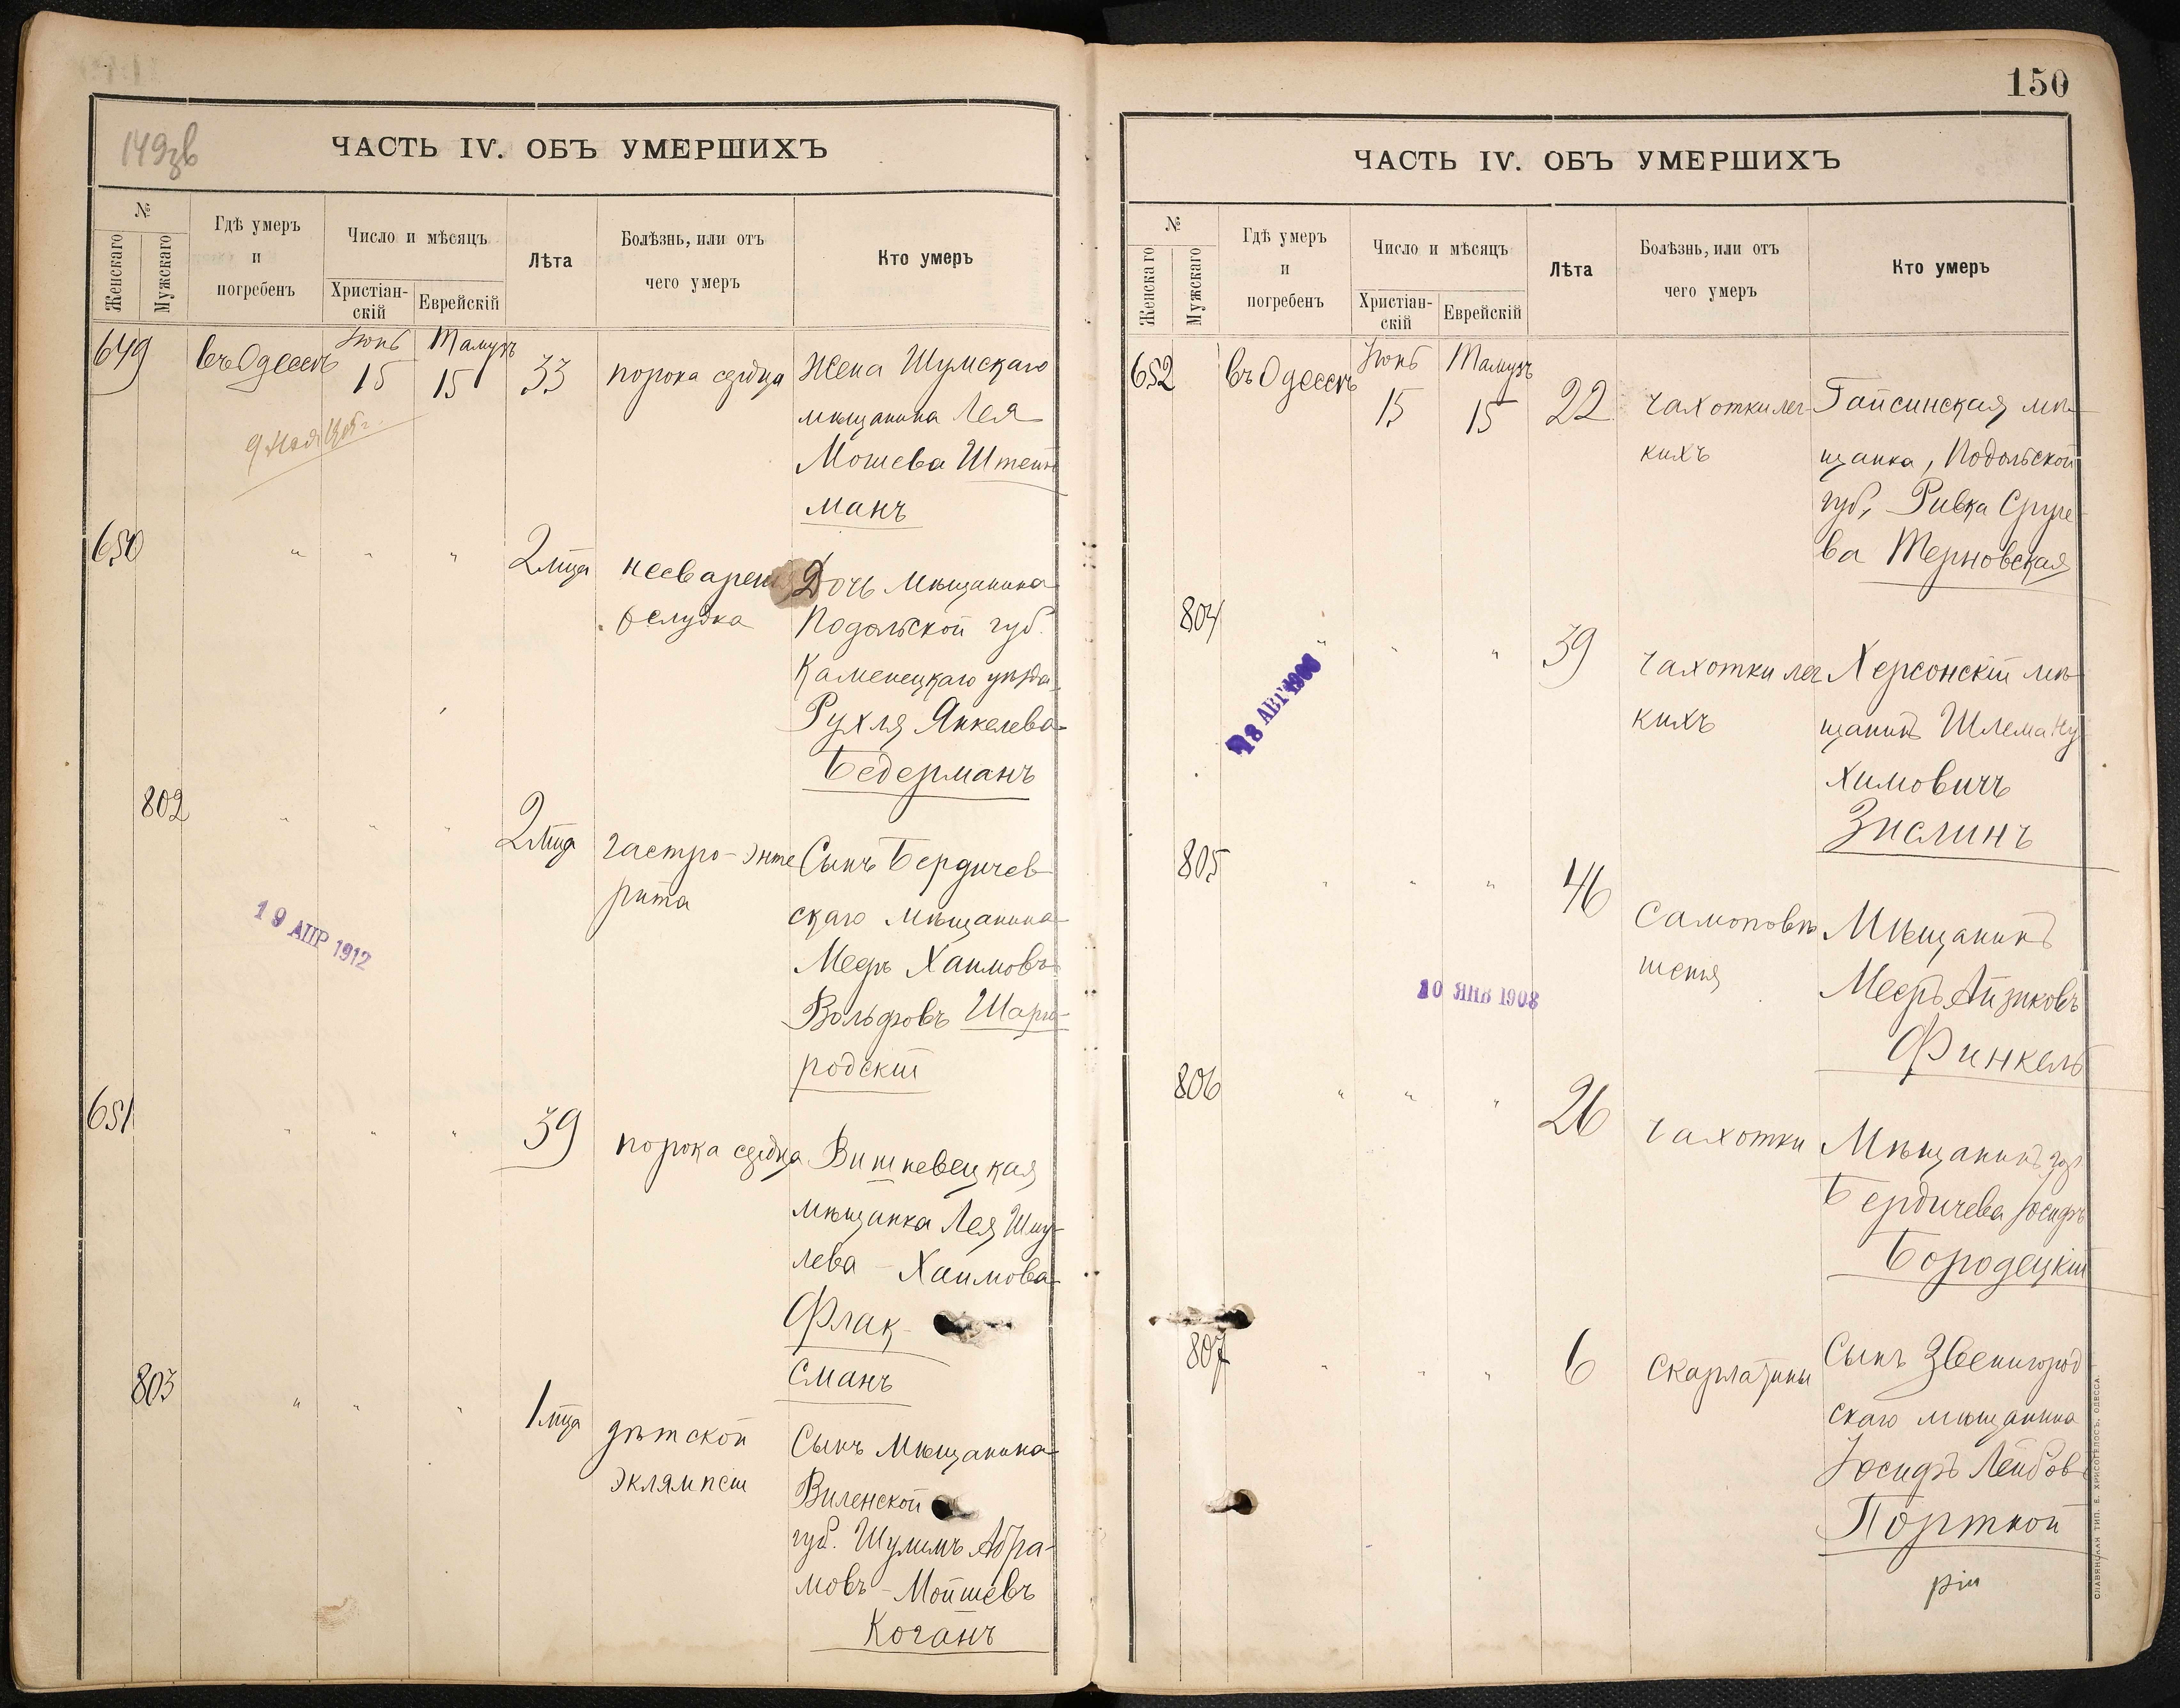 149зв
ЧАСТЬ IV. ОБЪ УМЕРШИХЪ
№
Женскаго
Мужскаго
Гдѣ умеръ
и
погребенъ
Число и мѣсяцъ
Христіан-
скій
Еврейскій
Лѣта
Болѣзнь, или отъ
чего умеръ
Кто умеръ
649
въ Одессѣ
Іюнь
15
Тамузъ
15
33
порока сердца
Жена Шумскаго
мѣщанина Лея
Мошева Штейн
манъ
9 Мая
650
" " "
2 мца
несварен
желудка
Дочь мѣщанина
Подольской губ.
Каменецкаго уѣзда
Рухля Янкелева
Бедерманъ
802
" " "
2 мца
гастро-энте
рита
Сынъ Бердичев
скаго мѣщанина
Меръ Хаимовъ
Вольфовъ Шарго-
родскій
19 АПР 1912
651
" " "
39
порока сердца
Вишневецкая
мѣщанка Лея Шму-
лева - Хаимова
Флак-
сманъ
803
" " "
1 мца
дѣтской
эклямпсіи
Сынъ Мѣщанина
Виленской
губ. Шулимъ Абра-
мовъ - Мойшевъ
Коганъ
150
ЧАСТЬ IV. ОБЪ УМЕРШИХЪ
№
Женскаго
Мужскаго
Гдѣ умеръ
и
погребенъ
Число и мѣсяцъ
Христіан-
скій
Еврейскій
Лѣта
Болѣзнь, или отъ
чего умеръ
Кто умеръ
652
въ Одессѣ
Іюнь
15
Тамузъ
15
22
чахотки лег-
кихъ
Гайсинская мѣ-
щанка, Подольской
губ, Ривка Сруле
ва Терновская
804
" " "
39
чахотки лег
кихъ
Херсонскій мѣ-
щанинъ Шлема Ну
химовичъ
Зислинъ
АВГ
805
" " "
46
Самоповѣ
шенія
Мѣщанинъ
Меръ Айзиковъ
Финкель
10 ЯНВ 1908
806
" " "
26
чахотки
Мѣщанинъ гор
Бердичева Іосифъ
Бородецкій
807
" " "
6
Скарлатины
Сынъ Звенигород-
скаго мѣщанина
Іосифъ Лейбов
Портной
СЛАВЯНСКАЯ ТИП. Е. ХРИСОГЕЛОСЪ, ОДЕССА.